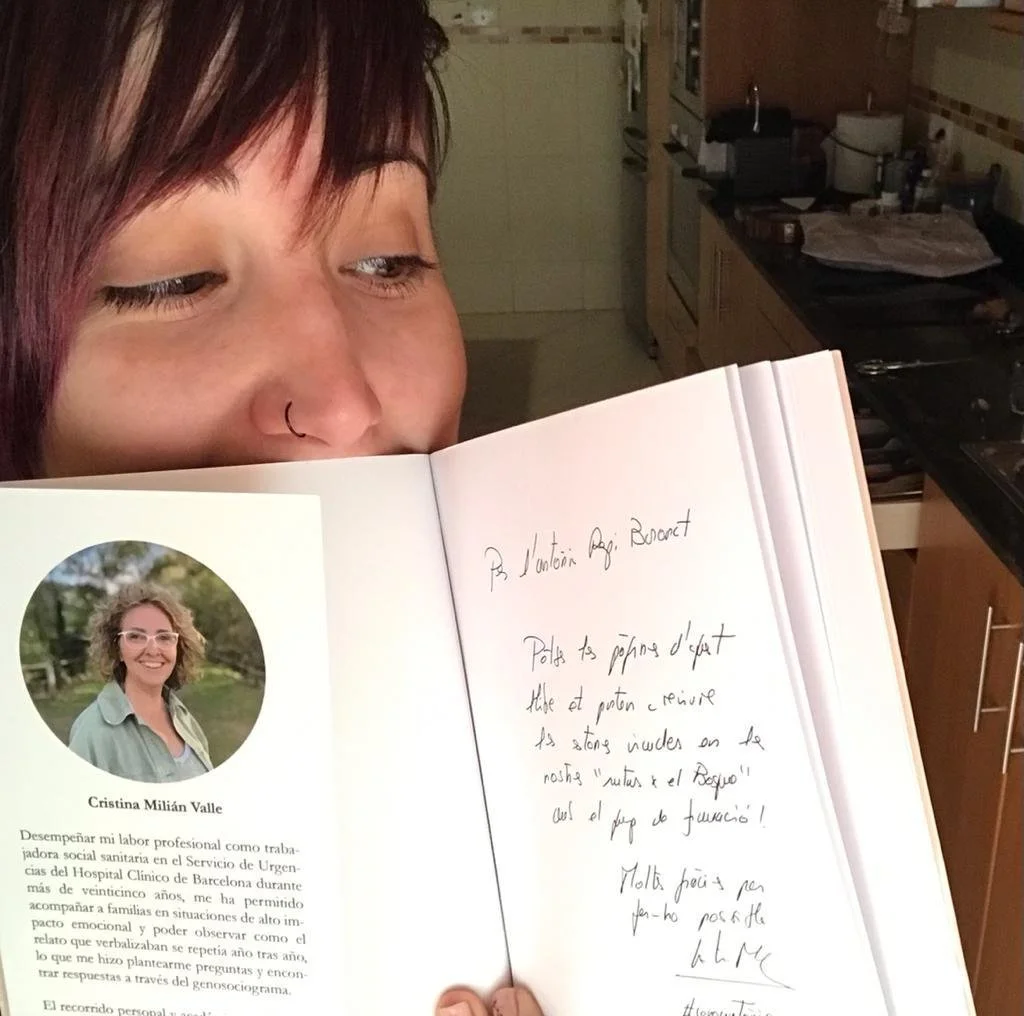 Cristina Milián Valle
Desempeñar mi labor profesional como traba-
jadora social sanitaria en el Servicio de Urgen-
cias del Hospital Clínico de Barcelona durante
más de veinticinco años, me ha permitido
acompañar a familias en situaciones de alto im-
pacto emocional y poder observar como el
relato que verbalizaban se repetía año tras año,
lo que me hizo plantearme preguntas y encon-
trar respuestas a través del genosociograma.
El recorrido personal y
Per l'Antònia
les pàgines d'aquest
llibre et porten a reviure
les estones viscudes en les
nostres "rutas x el Bosque"
amb el grup de formació!
Moltes gràcies per
fer-ho possible